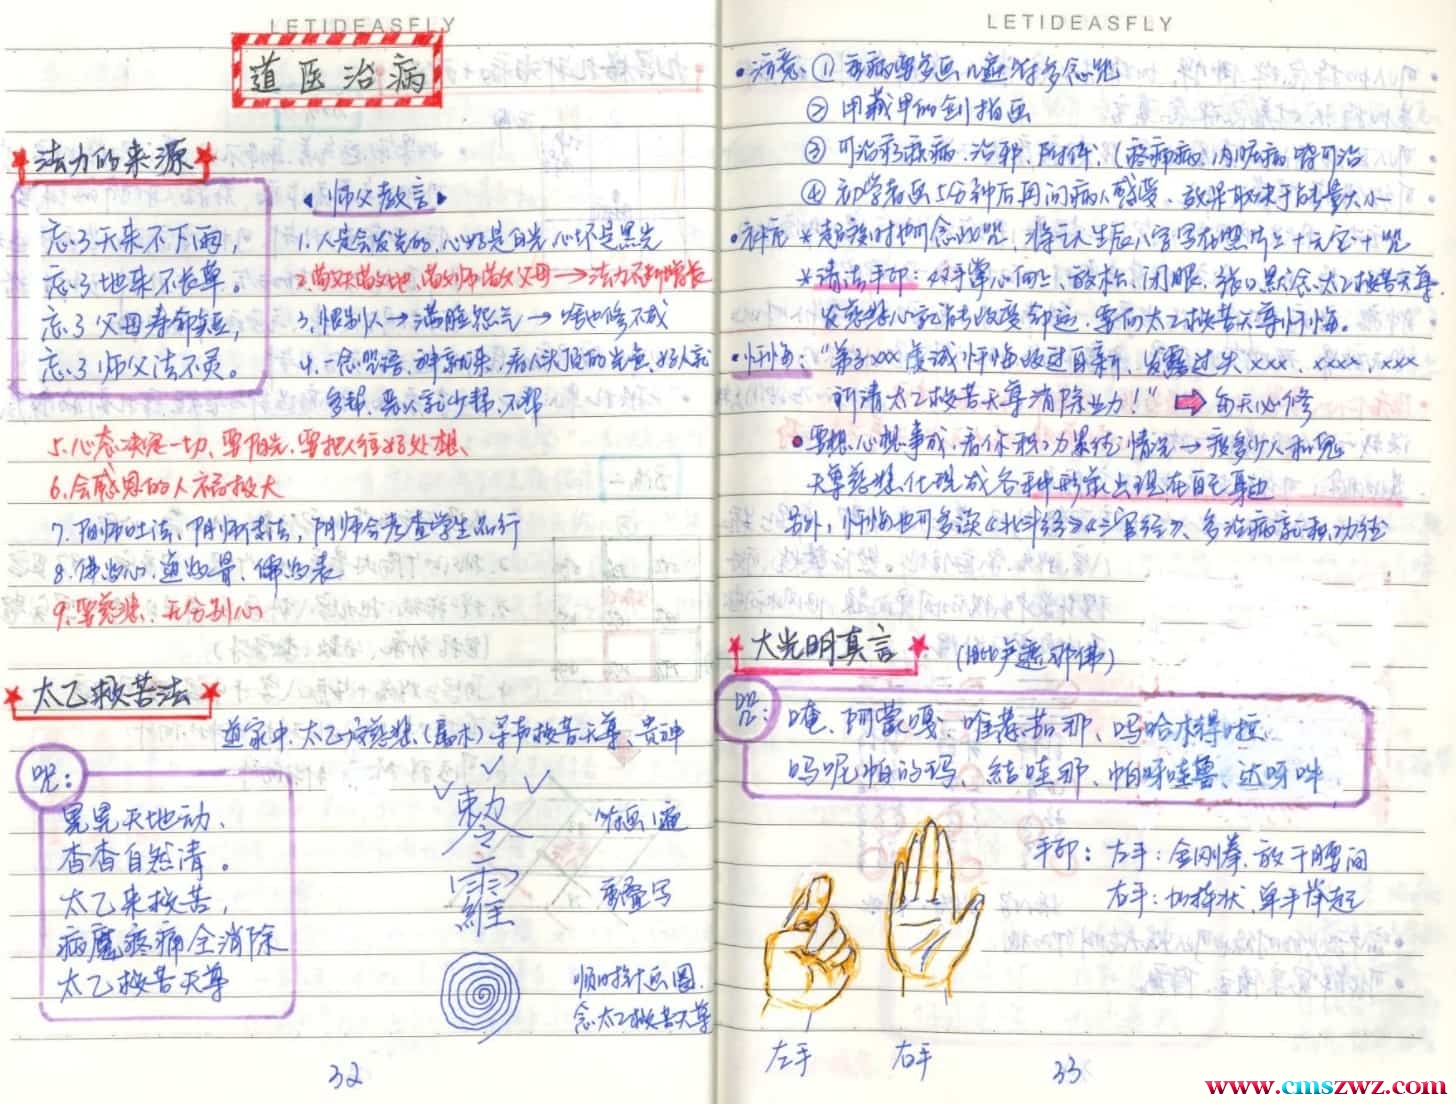 LETIDEASFLY
道医治病
法力的来源
忘了天来不下雨，
忘了地来不长草。
忘了父母寿命短，
忘了师父法不灵。
师父教言
1.人是会发光的，心好是白光，心坏是黑光
2.尚天尚地，尚师尚父母→法力不断增长
3.恨别人→满腔怨气→啥也修不成
4.一念咒语，神就来，看人头顶的光色，好人就
多帮，恶人就少帮、不帮
5.心态决定一切，要阳光，要把人往好处想、
6.会感恩的人福报大
7.阳师吐法，阴师传法，阴师会考查学生品行
8.佛为心，道为骨，儒为表
9.要慈悲，无分别心
太乙救苦法
道家中，太乙最慈悲(属木)寻声救苦天尊，贵神
咒：
晃晃天地动、
杳杳自然清。
太乙来救苦，
病魔疼痛全消除
太乙救苦天尊
敕令
靇
各画1遍
重叠写
顺时针画圈，
念太乙救苦天尊
32
LETIDEASFLY
注意：① 重病要多画几遍，并多念咒
② 用藏甲的剑指画
③ 可治形疾病、治邪、附体（疼痛病、内脏病皆可治
④ 初学者画5分钟后再问病人感受、效果取决于能量大小
补充 *超度时也可念此咒，将亡人生辰八字写在照片上+元宝+咒
*请法手印：双手掌心向上，放松，闭眼，张口，默念太乙救苦天尊、
发慈悲心，就能改变命运，要向太乙救苦天尊忏悔。
忏悔："弟子xxx虔诚忏悔改过自新、发露过失xxx、xxxx、xxxx
祈请太乙救苦天尊消除业力！" ➡ 每天必修
要想心想事成，看你积功累德情况→救多少人和鬼
天尊慈悲，化现成各种形象出现在自己身边
另外，忏悔也可多读《北斗经》《三官经》、多治病就积功德
大光明真言
(毗卢遮那佛)
咒：
唵、阿蒙嘎、唯嘉茹那、吗哈木得啦、
吗呢帕的玛、结哇那、帕呀哇鲁、达呀吽
手印：左手：金刚拳，放于腰间
右手：如掌状，单手伸起
左手
右手
33
www.cmszwz.com